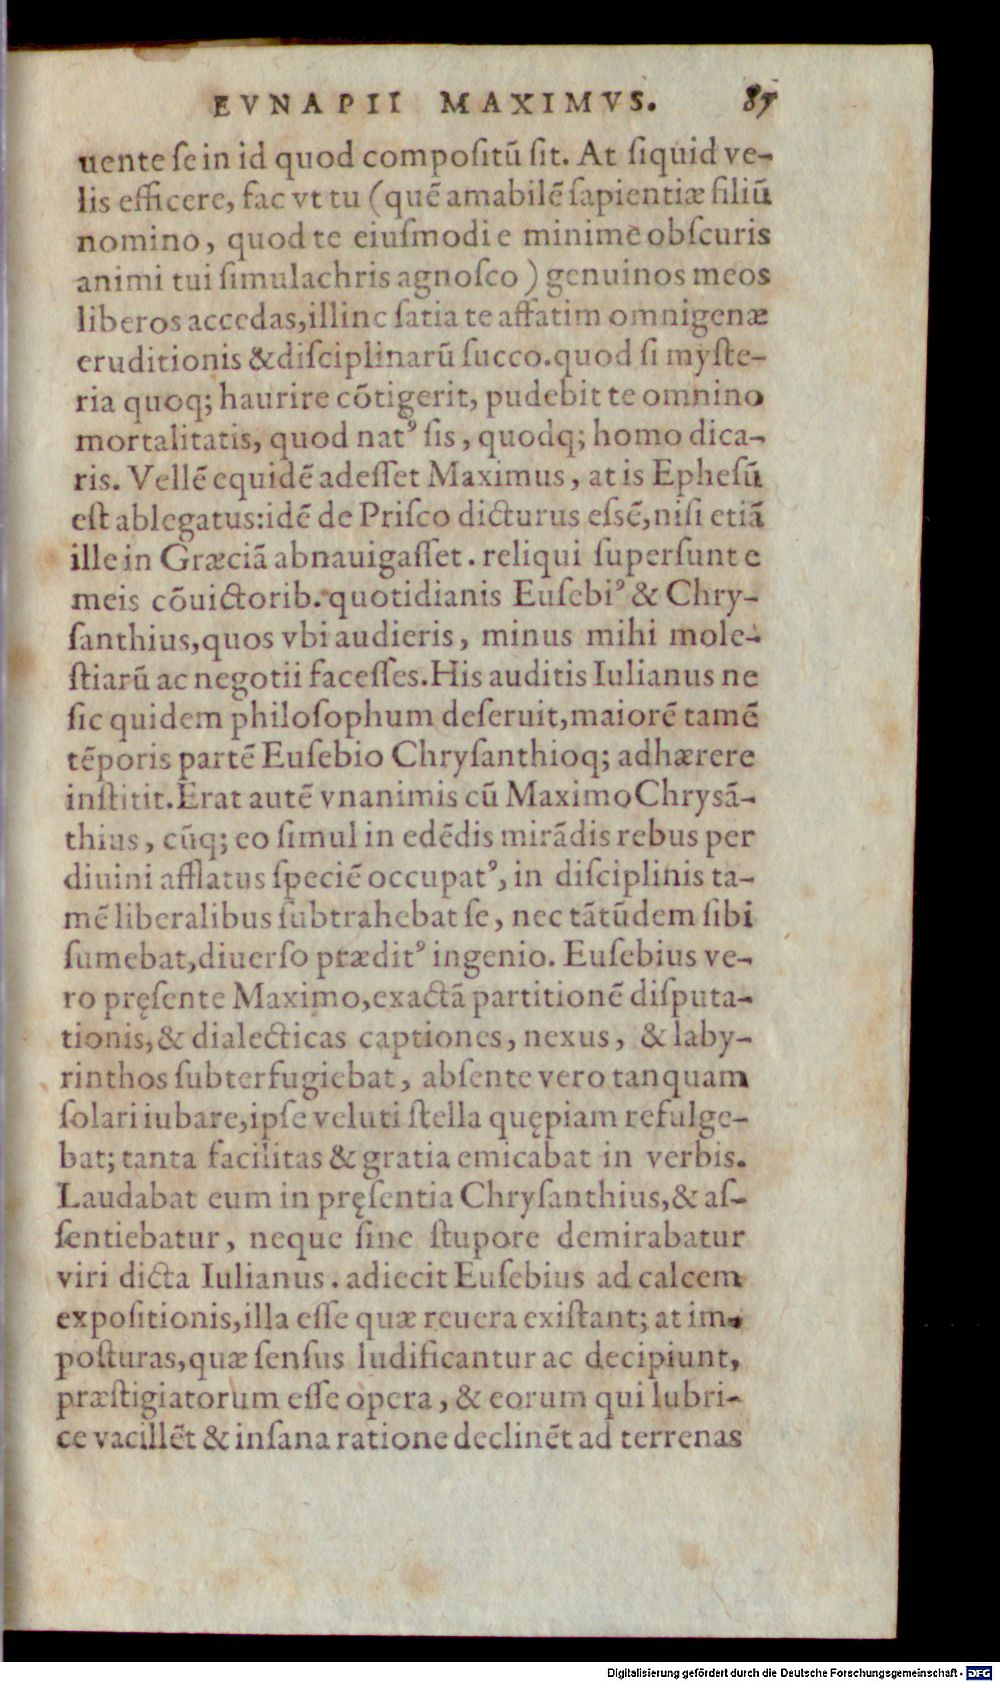 EVNAPII MAXIMVS. 85
uente ſe in id quod compoſitũ ſit. At ſiquid ve-
lis efficere, fac vt tu (quẽ amabilẽ ſapientiæ filiũ
nomino, quod te eiuſmodi e minime obſcuris
animi tui ſimulachris agnoſco) genuinos meos
liberos accedas, illinc ſatia te affatim omnigenæ
eruditionis & diſciplinarũ ſucco. quod ſi myſte-
ria quoq; haurire cõtigerit, pudebit te omnino
mortalitatis, quod natꝰ ſis, quodq; homo dica-
ris. Vellẽ equidẽ adeſſet Maximus, at is Epheſũ
eſt ablegatus: idẽ de Priſco dicturus eſsẽ, niſi etiã
ille in Græciã abnauigaſſet. reliqui ſuperſunt e
meis cõuictorib. quotidianis Euſebiꝰ & Chry-
ſanthius, quos vbi audieris, minus mihi mole-
ſtiarũ ac negotii faceſſes. His auditis Iulianus ne
ſic quidem philoſophum deſeruit, maiorẽ tamẽ
tẽporis partẽ Euſebio Chryſanthioq; adhærere
inſtitit. Erat autẽ vnanimis cũ Maximo Chrysã-
thius, cũq; eo ſimul in edẽdis mirãdis rebus per
diuini afflatus ſpeciẽ occupatꝰ, in diſciplinis ta-
mẽ liberalibus ſubtrahebat ſe, nec tãtũdem ſibi
ſumebat, diuerſo præditꝰ ingenio. Euſebius ve-
ro pręſente Maximo, exactã partitionẽ diſputa-
tionis, & dialecticas captiones, nexus, & laby-
rinthos ſubterfugiebat, abſente vero tanquam
ſolari iubare, ipſe veluti ſtella quępiam refulge-
bat; tanta facilitas & gratia emicabat in verbis.
Laudabat eum in pręſentia Chryſanthius, & aſ-
ſentiebatur, neque ſine ſtupore demirabatur
viri dicta Iulianus. adiecit Euſebius ad calcem
expoſitionis, illa eſſe quæ reuera exiſtant; at im-
poſturas, quæ ſenſus ludificantur ac decipiunt,
præſtigiatorum eſſe opera, & eorum qui lubri-
ce vacillẽt & inſana ratione declinẽt ad terrenas
Digitalisierung gefördert durch die Deutsche Forschungsgemeinschaft - DFG